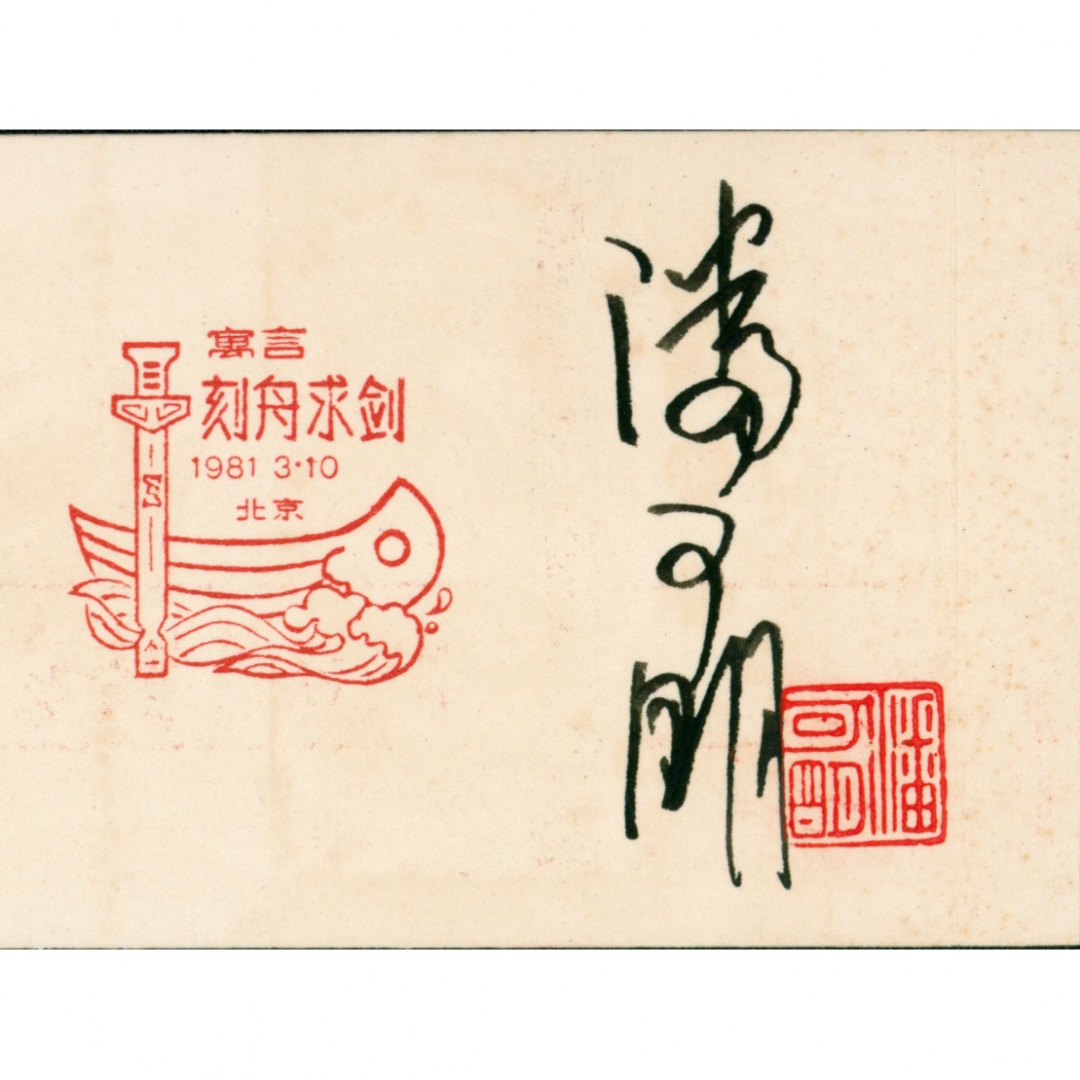 寓言
刻舟求剑
1981 3·10
北京
潘可明
潘可明